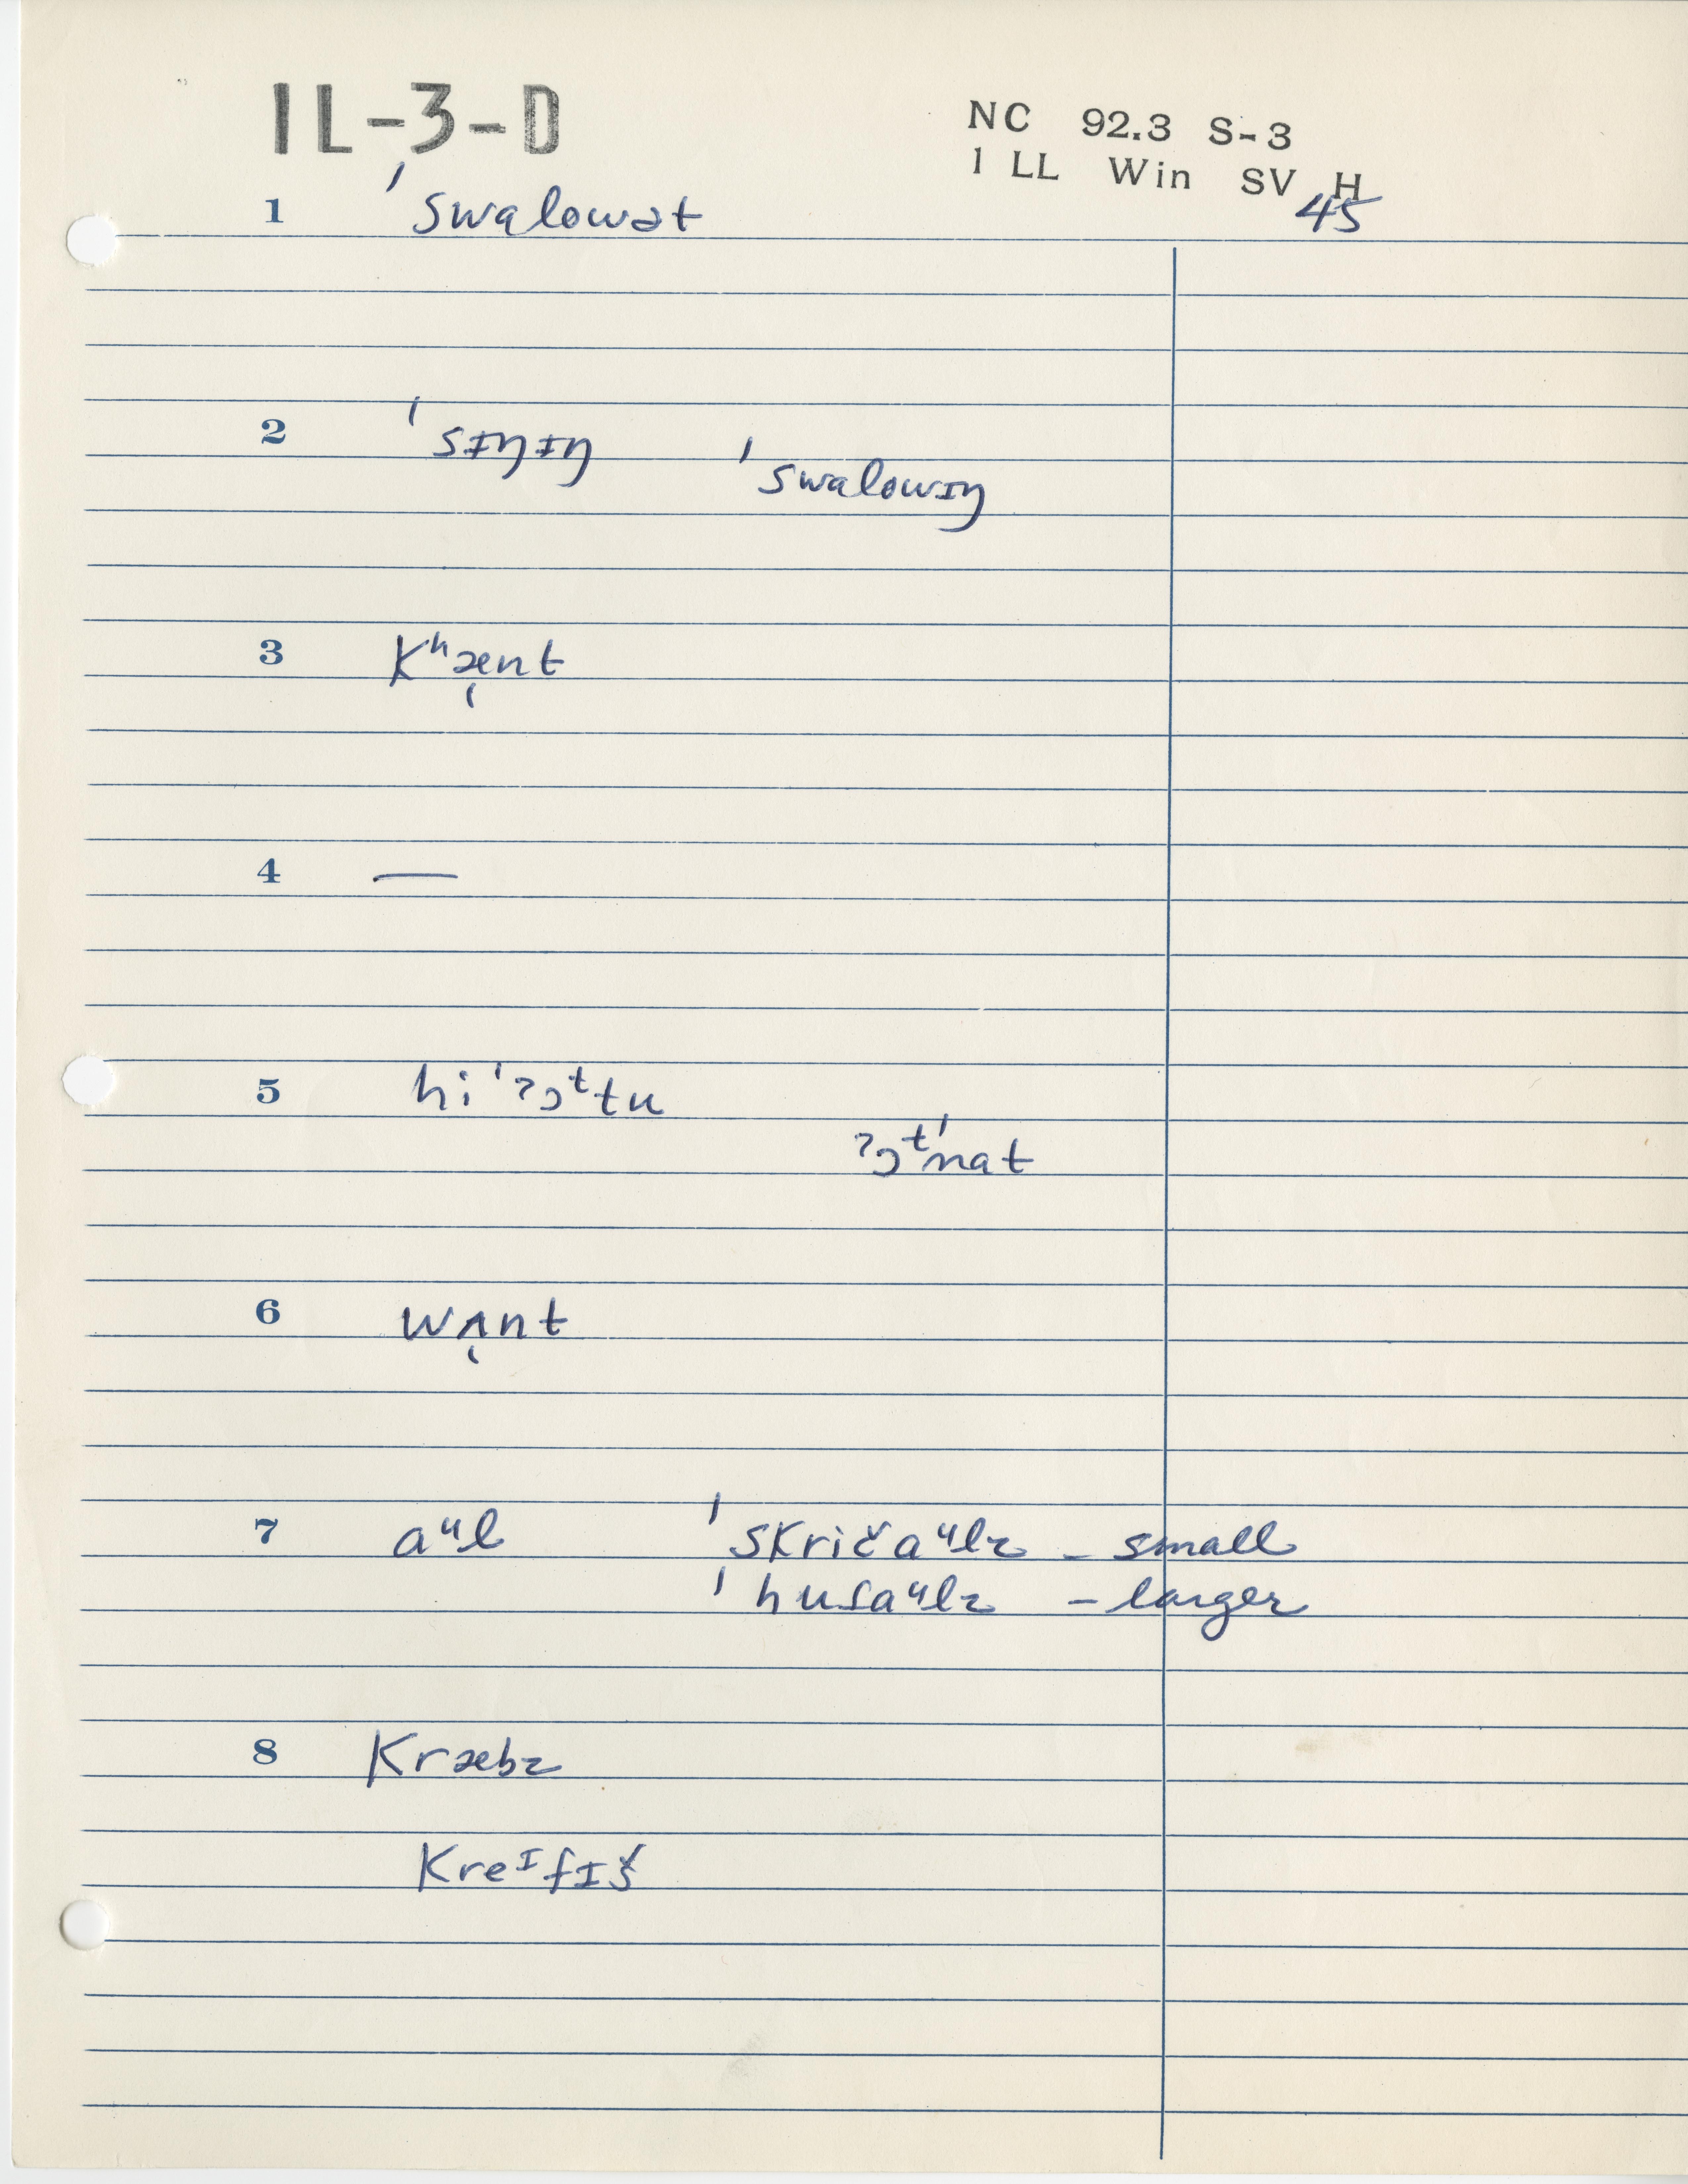 1L-3-D
NC 92.3 S-3
1 LL Win SV H
45
1 ˈswalowət
2 ˈsɪŋɪŋ ˈswalowɪŋ
3 Kʰæ̩nt
4 —
5 hiˈʔɔᵗtu
ʔɔᵗˈnat
6 wʌ̩nt
7 aᵘl ˈskričaᵘlz - small
ˈhufaᵘlz - larger
8 Kræbz
Kreᴵfɪš